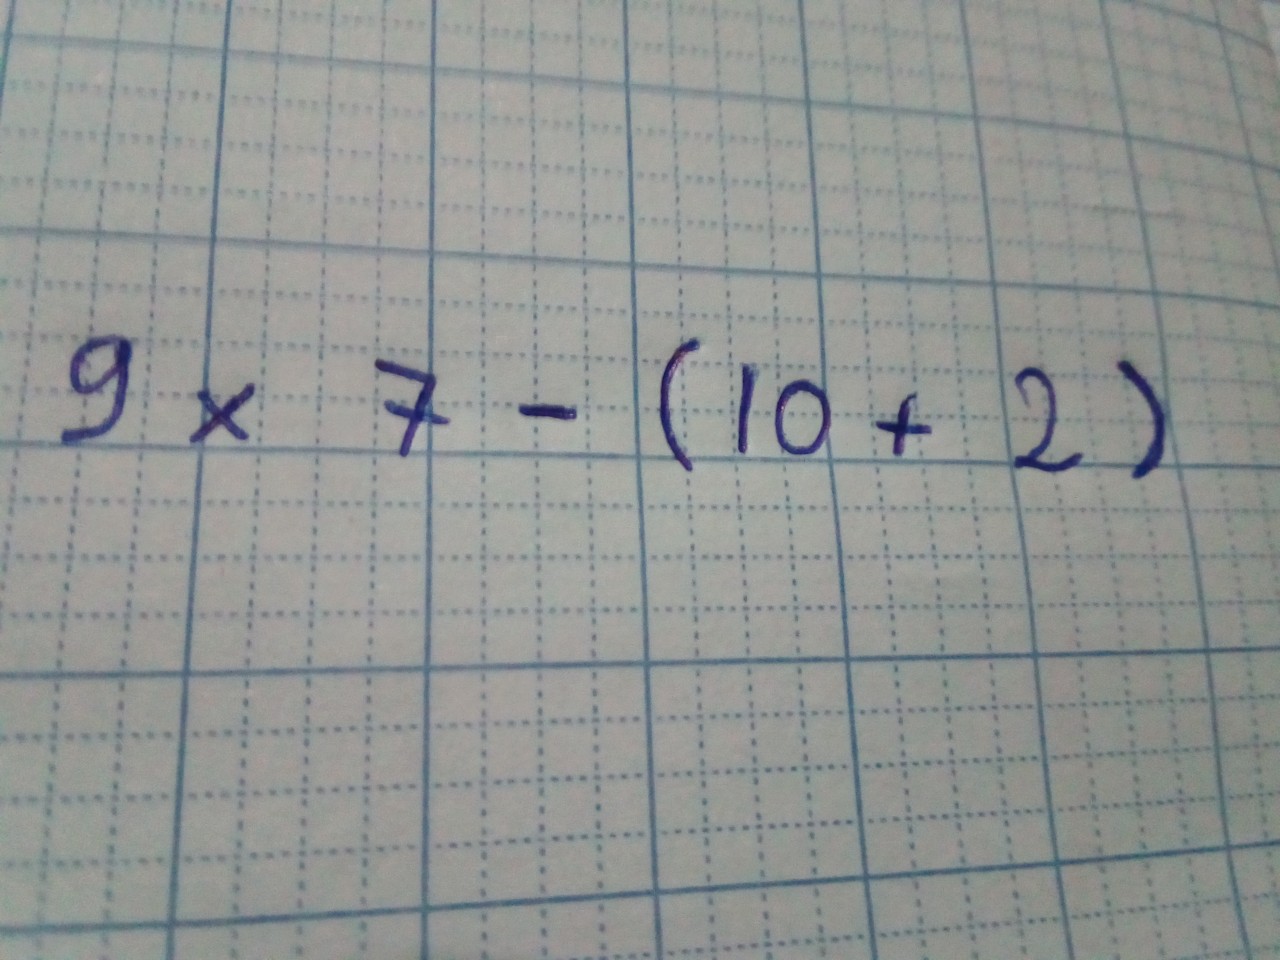 9 x 7 - (10 + 2)